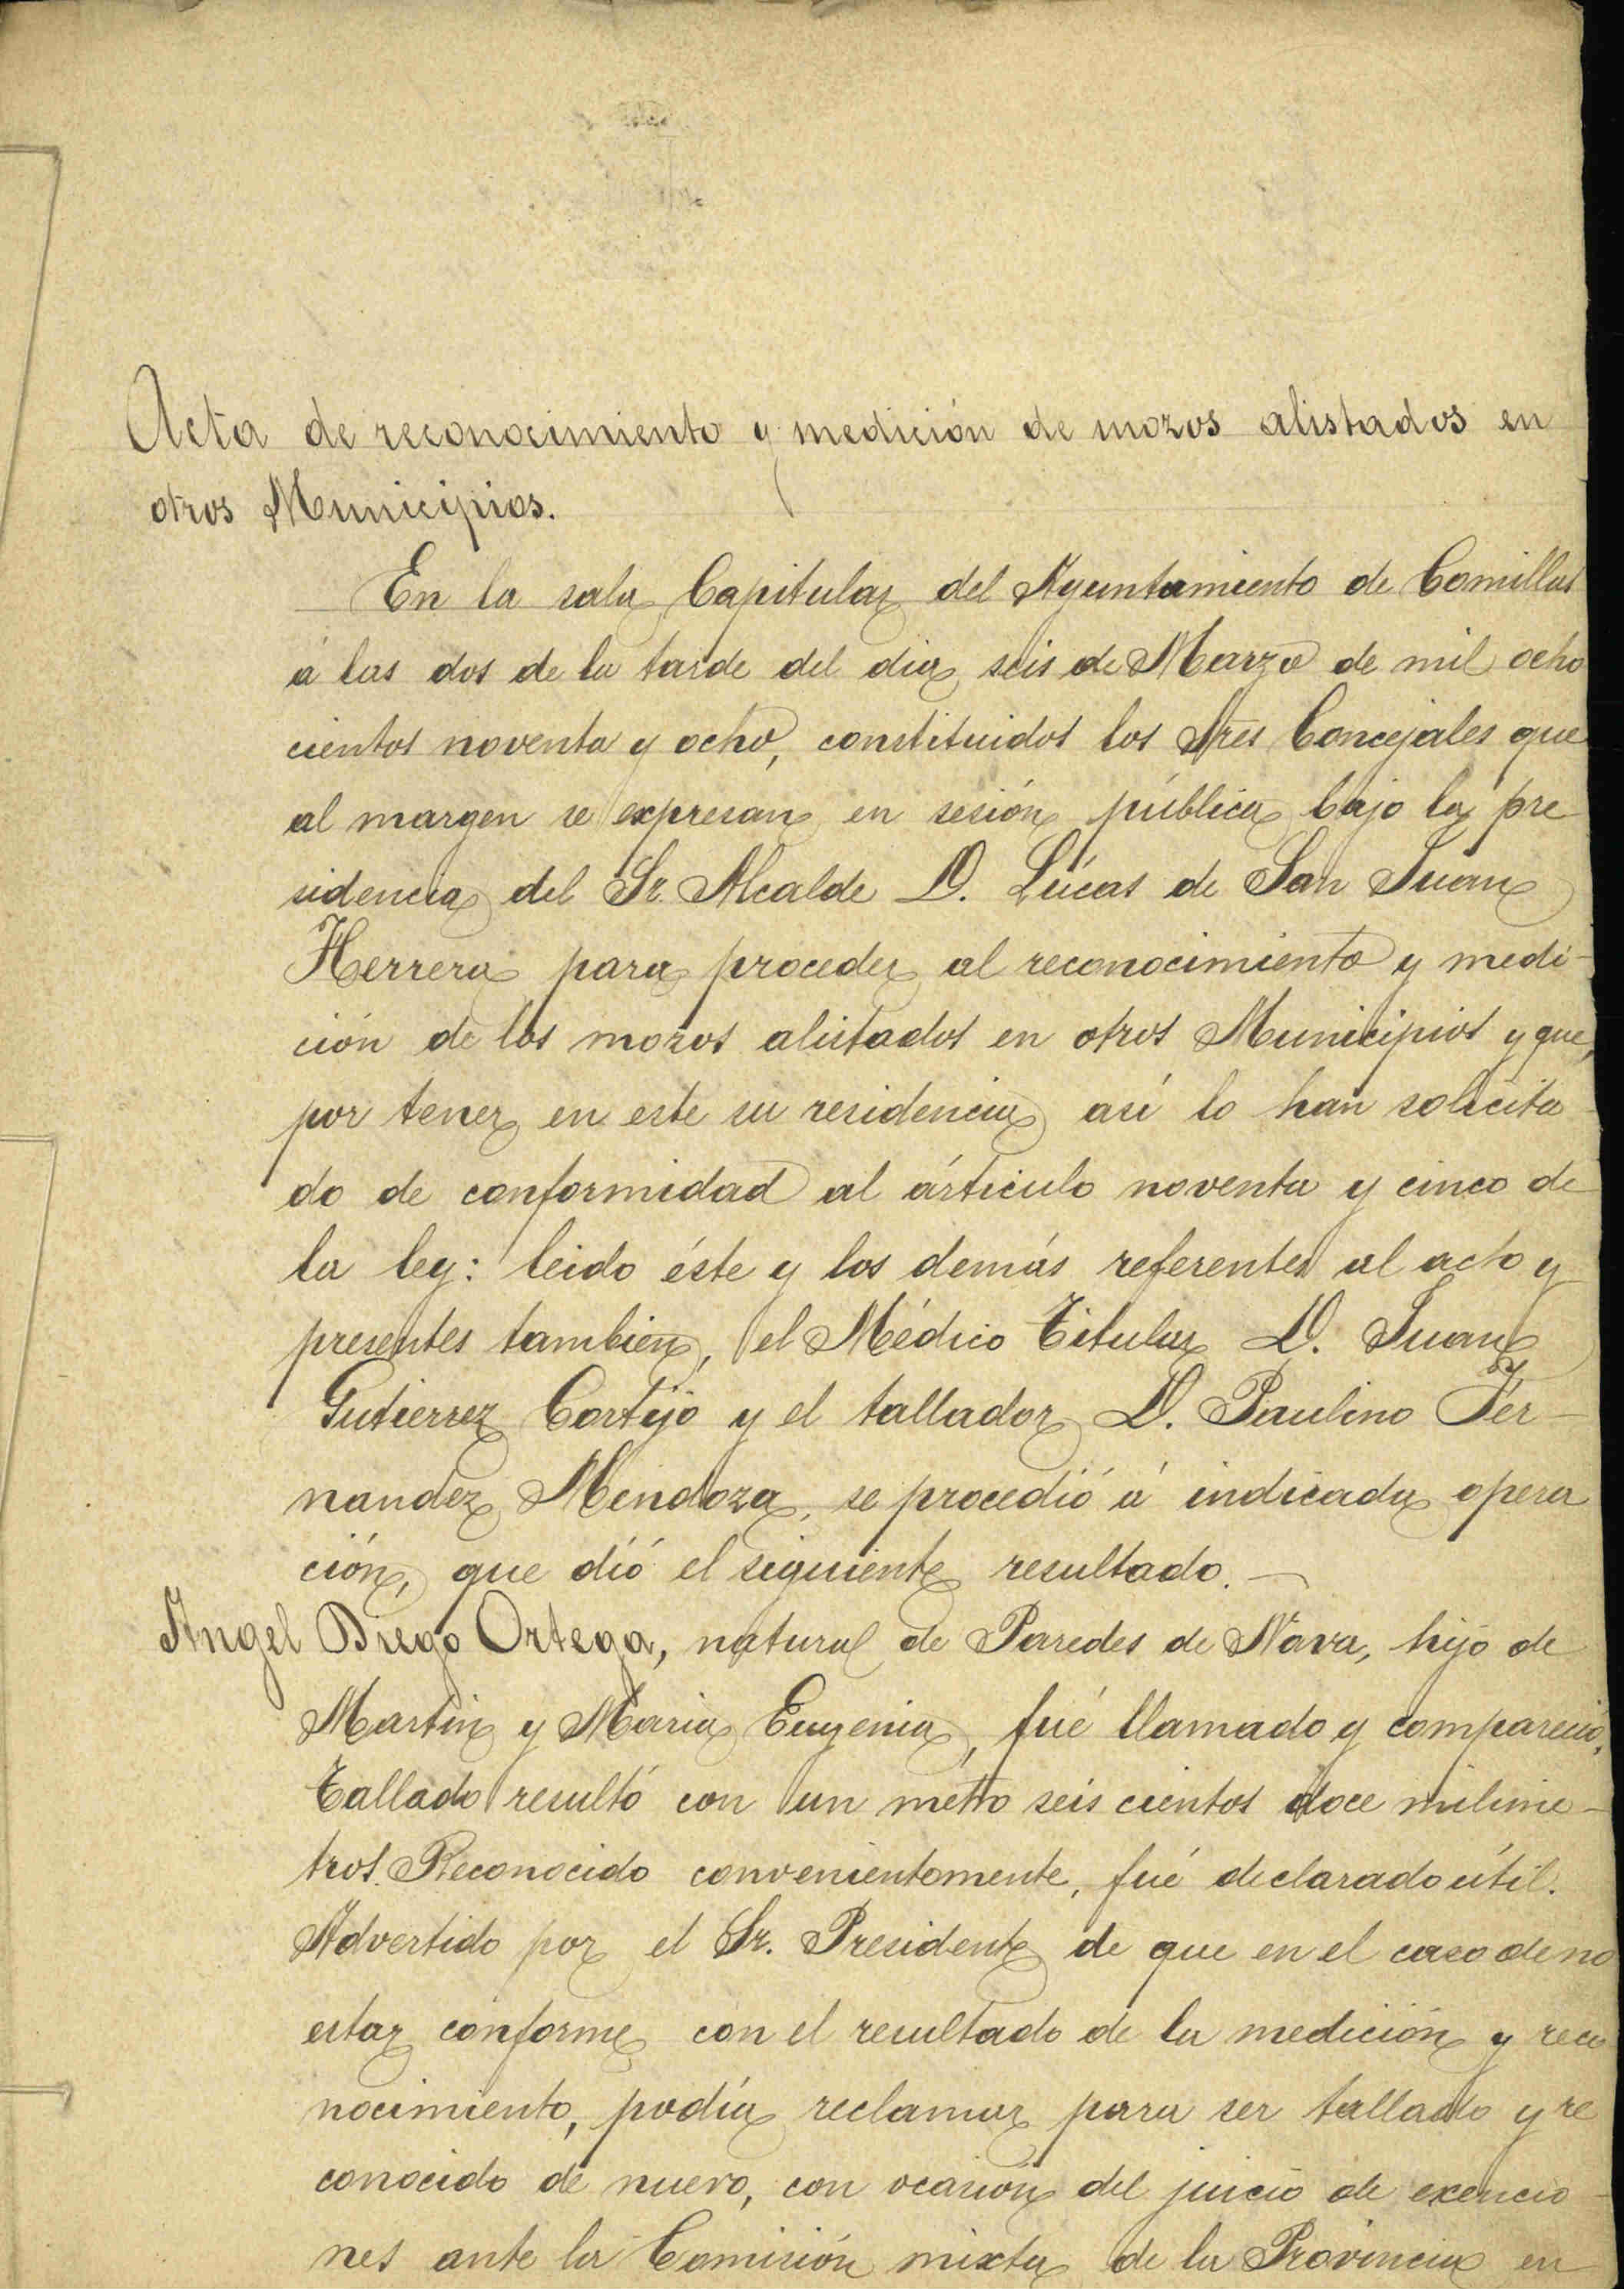 Acta de reconocimiento y medición de mozos alistados en
otros Municipios.
En la sala Capitular del Ayuntamiento de Comillas
á las dos de la tarde del dia seis de Marzo de mil ocho
cientos noventa y ocho, constituidos los Sres Concejales que
al margen se expresan en sesión pública bajo la pre
sidencia del Sr. Alcalde D. Lúcas de San Juan
Herrera para proceder al reconocimiento y medi-
ción de los mozos alistados en otros Municipios y que,
por tener en este su residencia así lo han solicita
do de conformidad al árticulo noventa y cinco de
la ley: leido éste y los demás referentes al acto y
presentes tambien, el Médico Titular D. Juan
Gutierrez Cortijo y el tallador D. Paulino Fer-
nandez Mendoza, se procedió á indicada opera
ción, que dió el siguiente resultado. —
Angel Diego Ortega, natural de Paredes de Nava, hijo de
Martin y Maria Eugenia, fué llamado y compareció,
Tallado resultó con un metro seis cientos doce milime-
tros. Reconocido convenientemente, fué declarado útil.
Advertido por el Sr. Presidente de que en el caso de no
estar conforme con el resultado de la medición y reco
nocimiento, podía reclamar para ser tallado y re
conocido de nuevo, con ocasion del juicio de exencio-
nes ante la Comisión mixta de la Provincia en